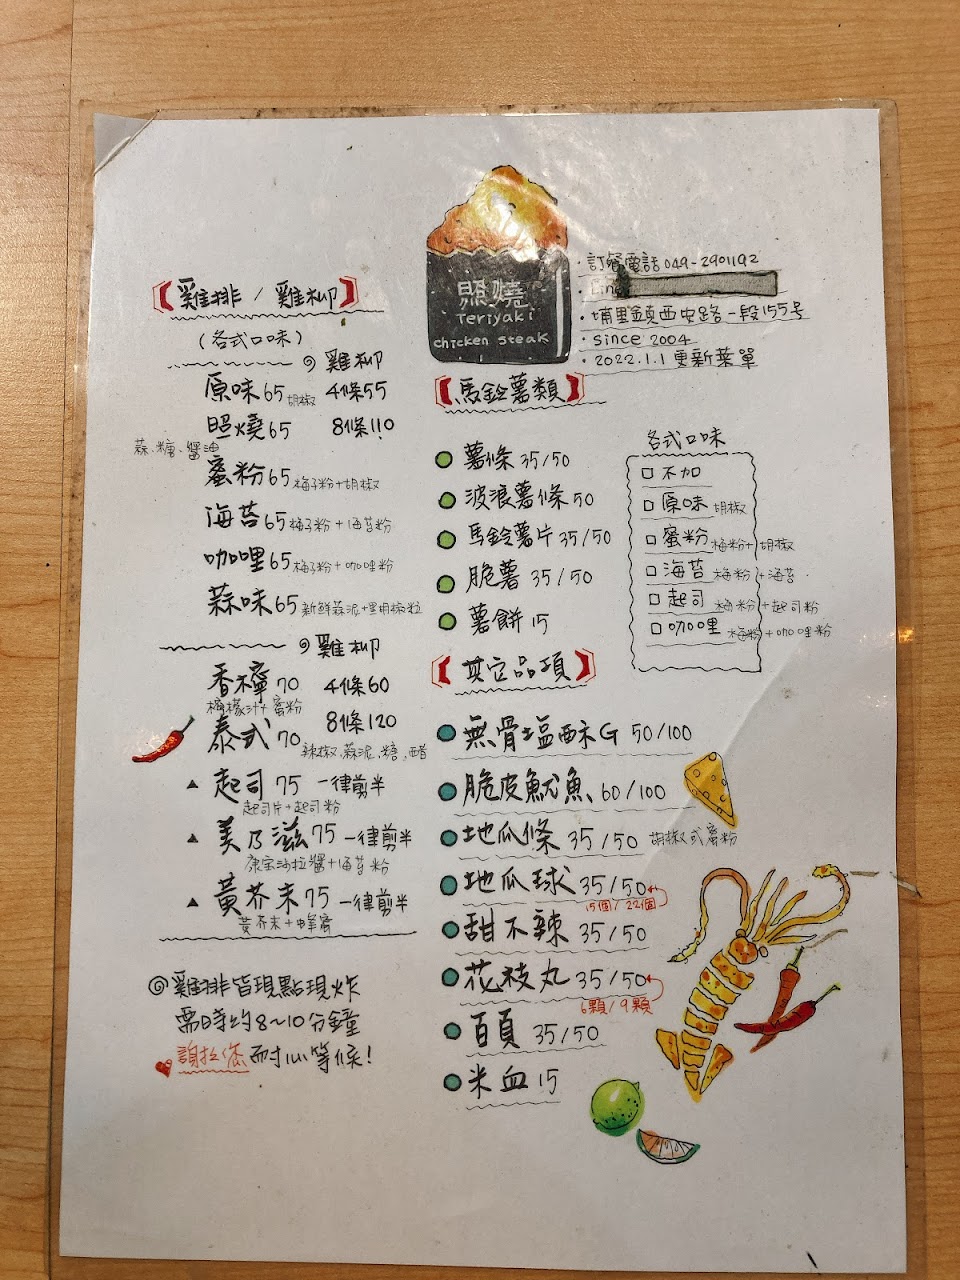 照燒
Teriyaki
chicken steak
·訂餐電話049-2901192
·Line
·埔里鎮西安路一段155号
·since 2004
·2022.1.1更新菜單
【雞排/雞柳】
(各式口味)
◎雞柳
原味65胡椒 4條55
照燒65 8條110
蒜、糖、醬油
蜜粉65梅子粉+胡椒
海苔65梅子粉+海苔粉
咖哩65梅子粉+咖哩粉
蒜味65新鮮蒜泥+黑胡椒粒
◎雞柳
香檸70 4條60
檸檬汁+蜜粉
泰式70 8條120
辣椒、蒜泥、糖、醋
▲起司75一律剪半
起司片+起司粉
▲美乃滋75一律剪半
康宝沙拉醬+海苔粉
▲黃芥末75一律剪半
黃芥末+蜂蜜
◎雞排皆現點現炸
需時約8~10分鐘
請拉您耐心等候!
【馬鈴薯類】
薯條35/50
波浪薯條50
馬鈴薯片35/50
脆薯35/50
薯餅15
各式口味
□不加
□原味胡椒
□蜜粉梅粉+胡椒
□海苔梅粉+海苔
□起司梅粉+起司粉
□咖哩梅粉+咖哩粉
【其它品項】
無骨塩酥G 50/100
脆皮魷魚60/100
地瓜條35/50 胡椒或蜜粉
地瓜球35/50
15個/22個
甜不辣35/50
花枝丸35/50
6顆/9顆
百頁35/50
米血15